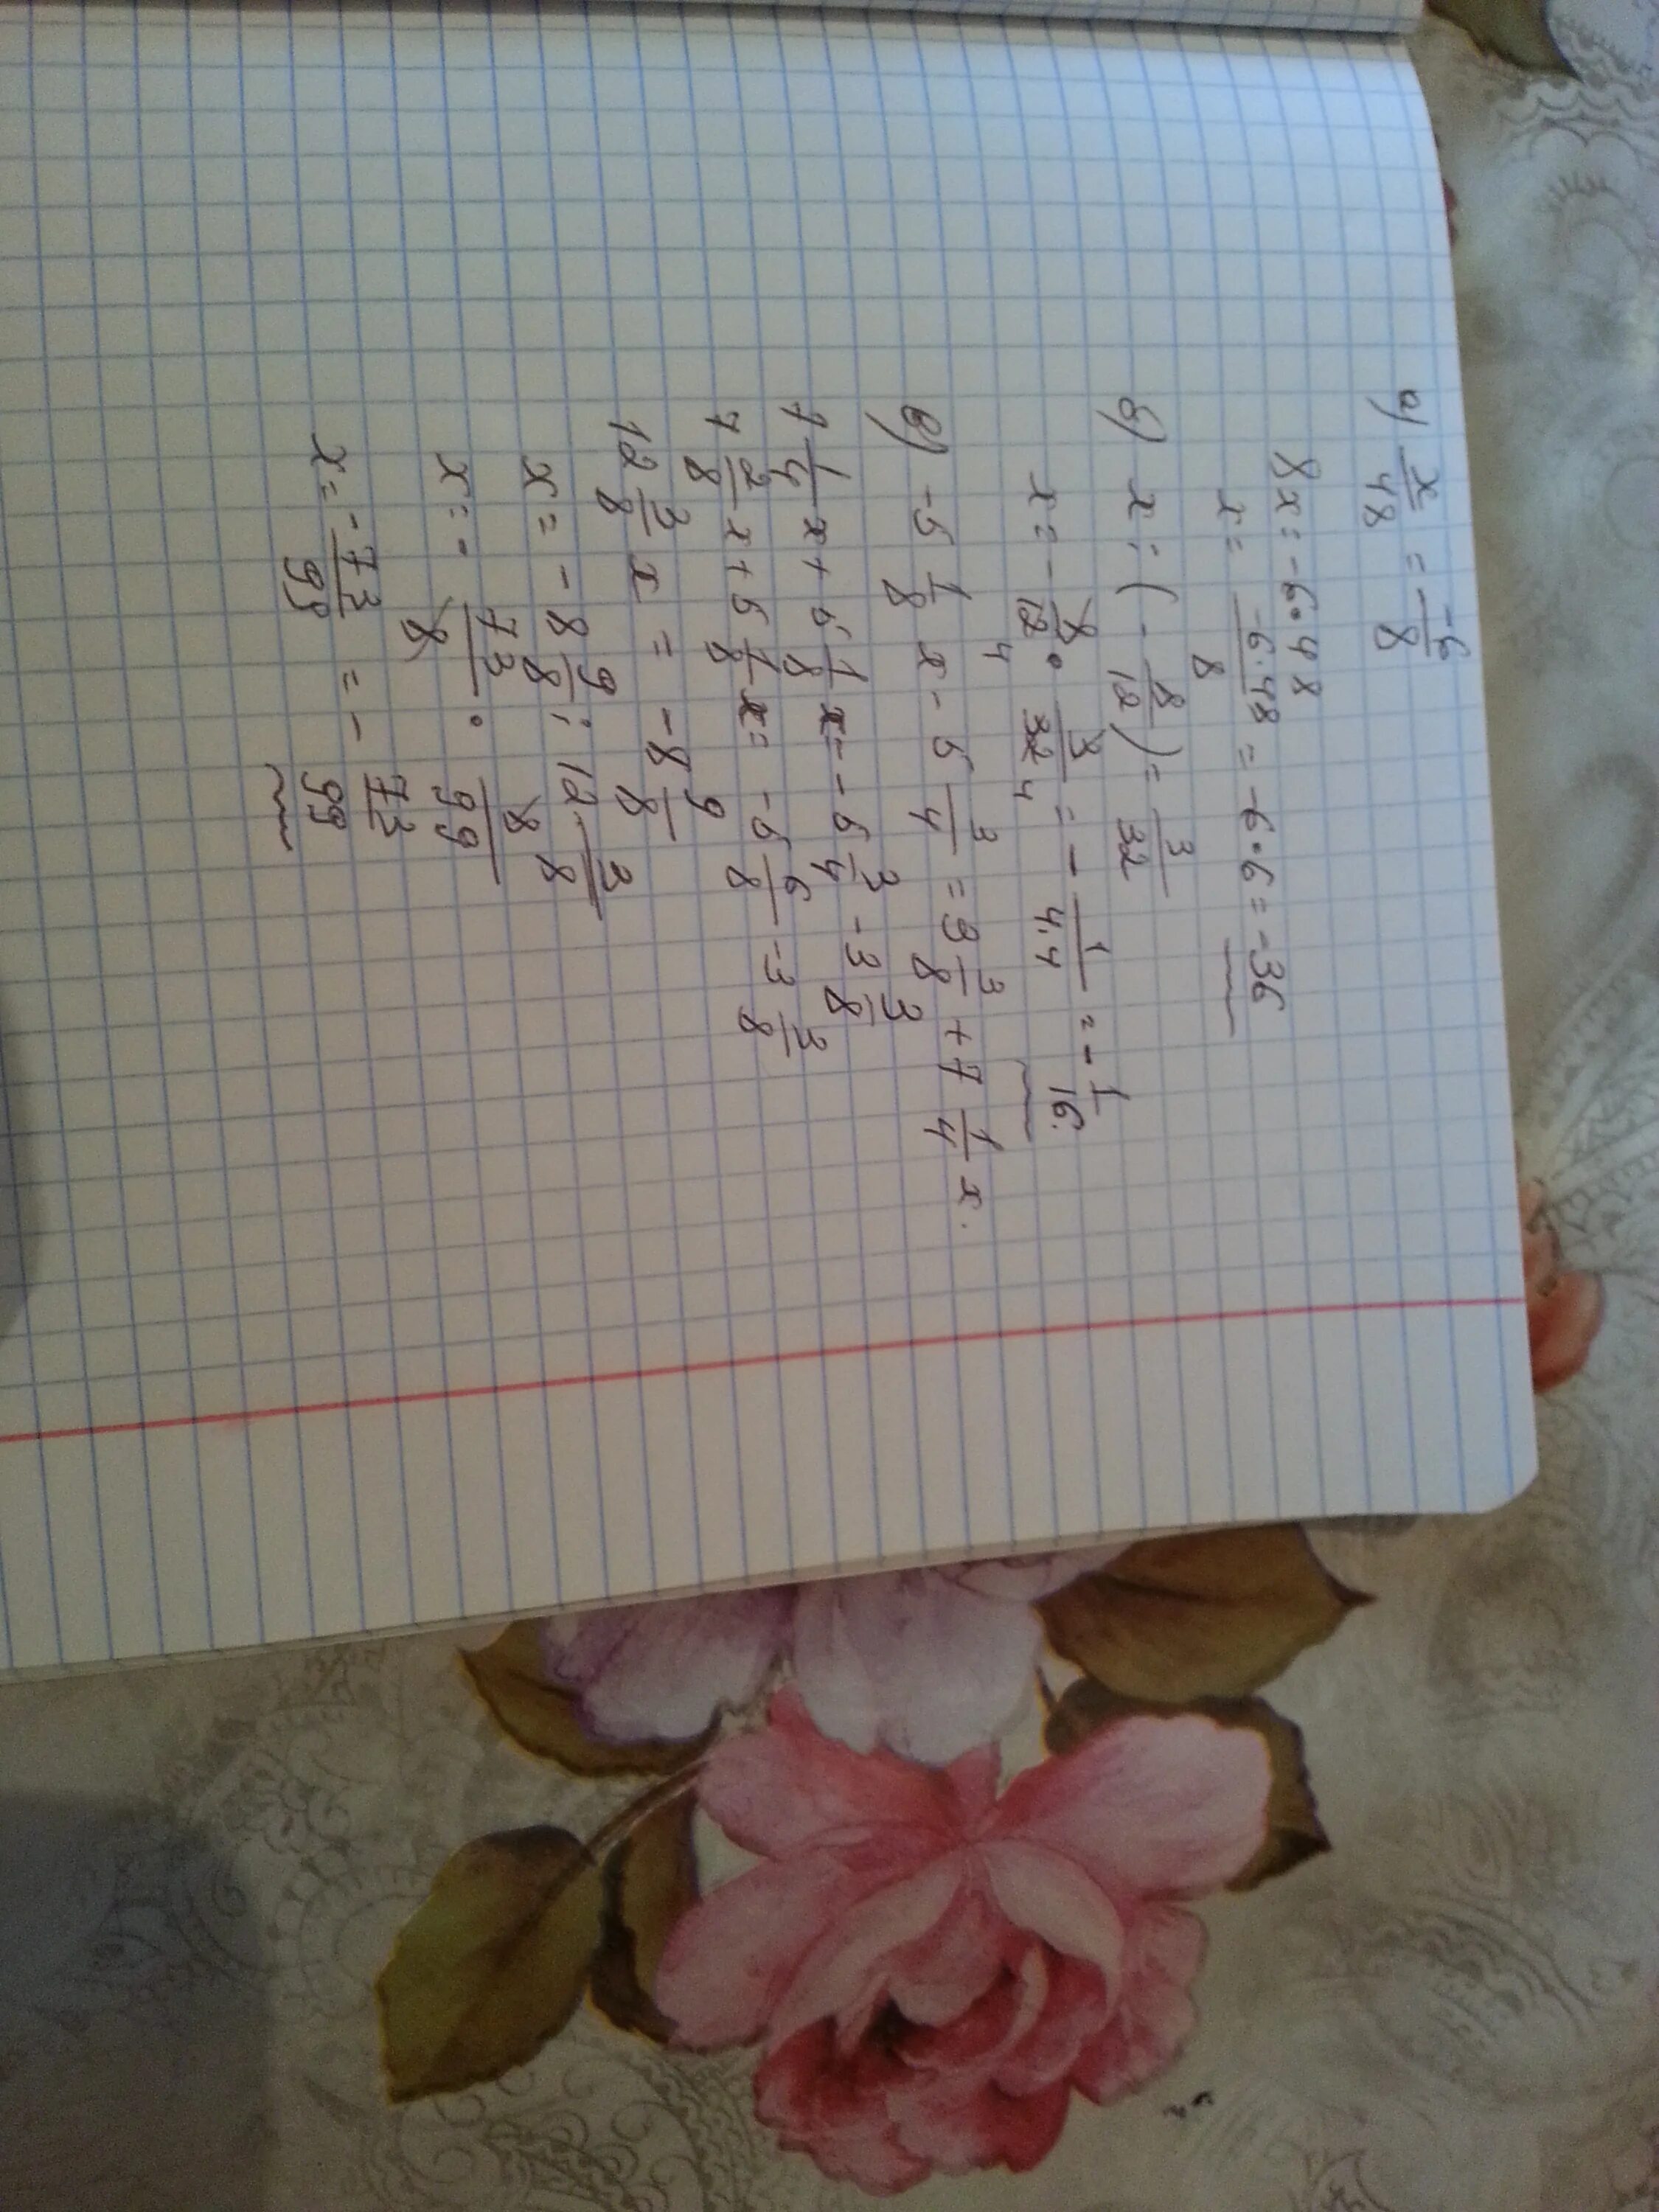 а) x/48 = -6/8
8x = -6•48
x = -6·48/8 = -6•6 = -36
б) x : (-8/12) = 3/32
x = -8/12 • 3/32 = -1/4·4 = -1/16.
4 4
в) -5 1/8 x - 5 3/4 = 3 3/8 + 7 1/4 x.
7 1/4 x + 5 1/8 x = -5 3/4 - 3 3/8
7 2/8 x + 5 1/8 x = -5 6/8 - 3 3/8
12 3/8 x = -8 9/8
x = -8 9/8 : 12 3/8
x = - 73/8 • 8/99
x = -73/99 = -73/99